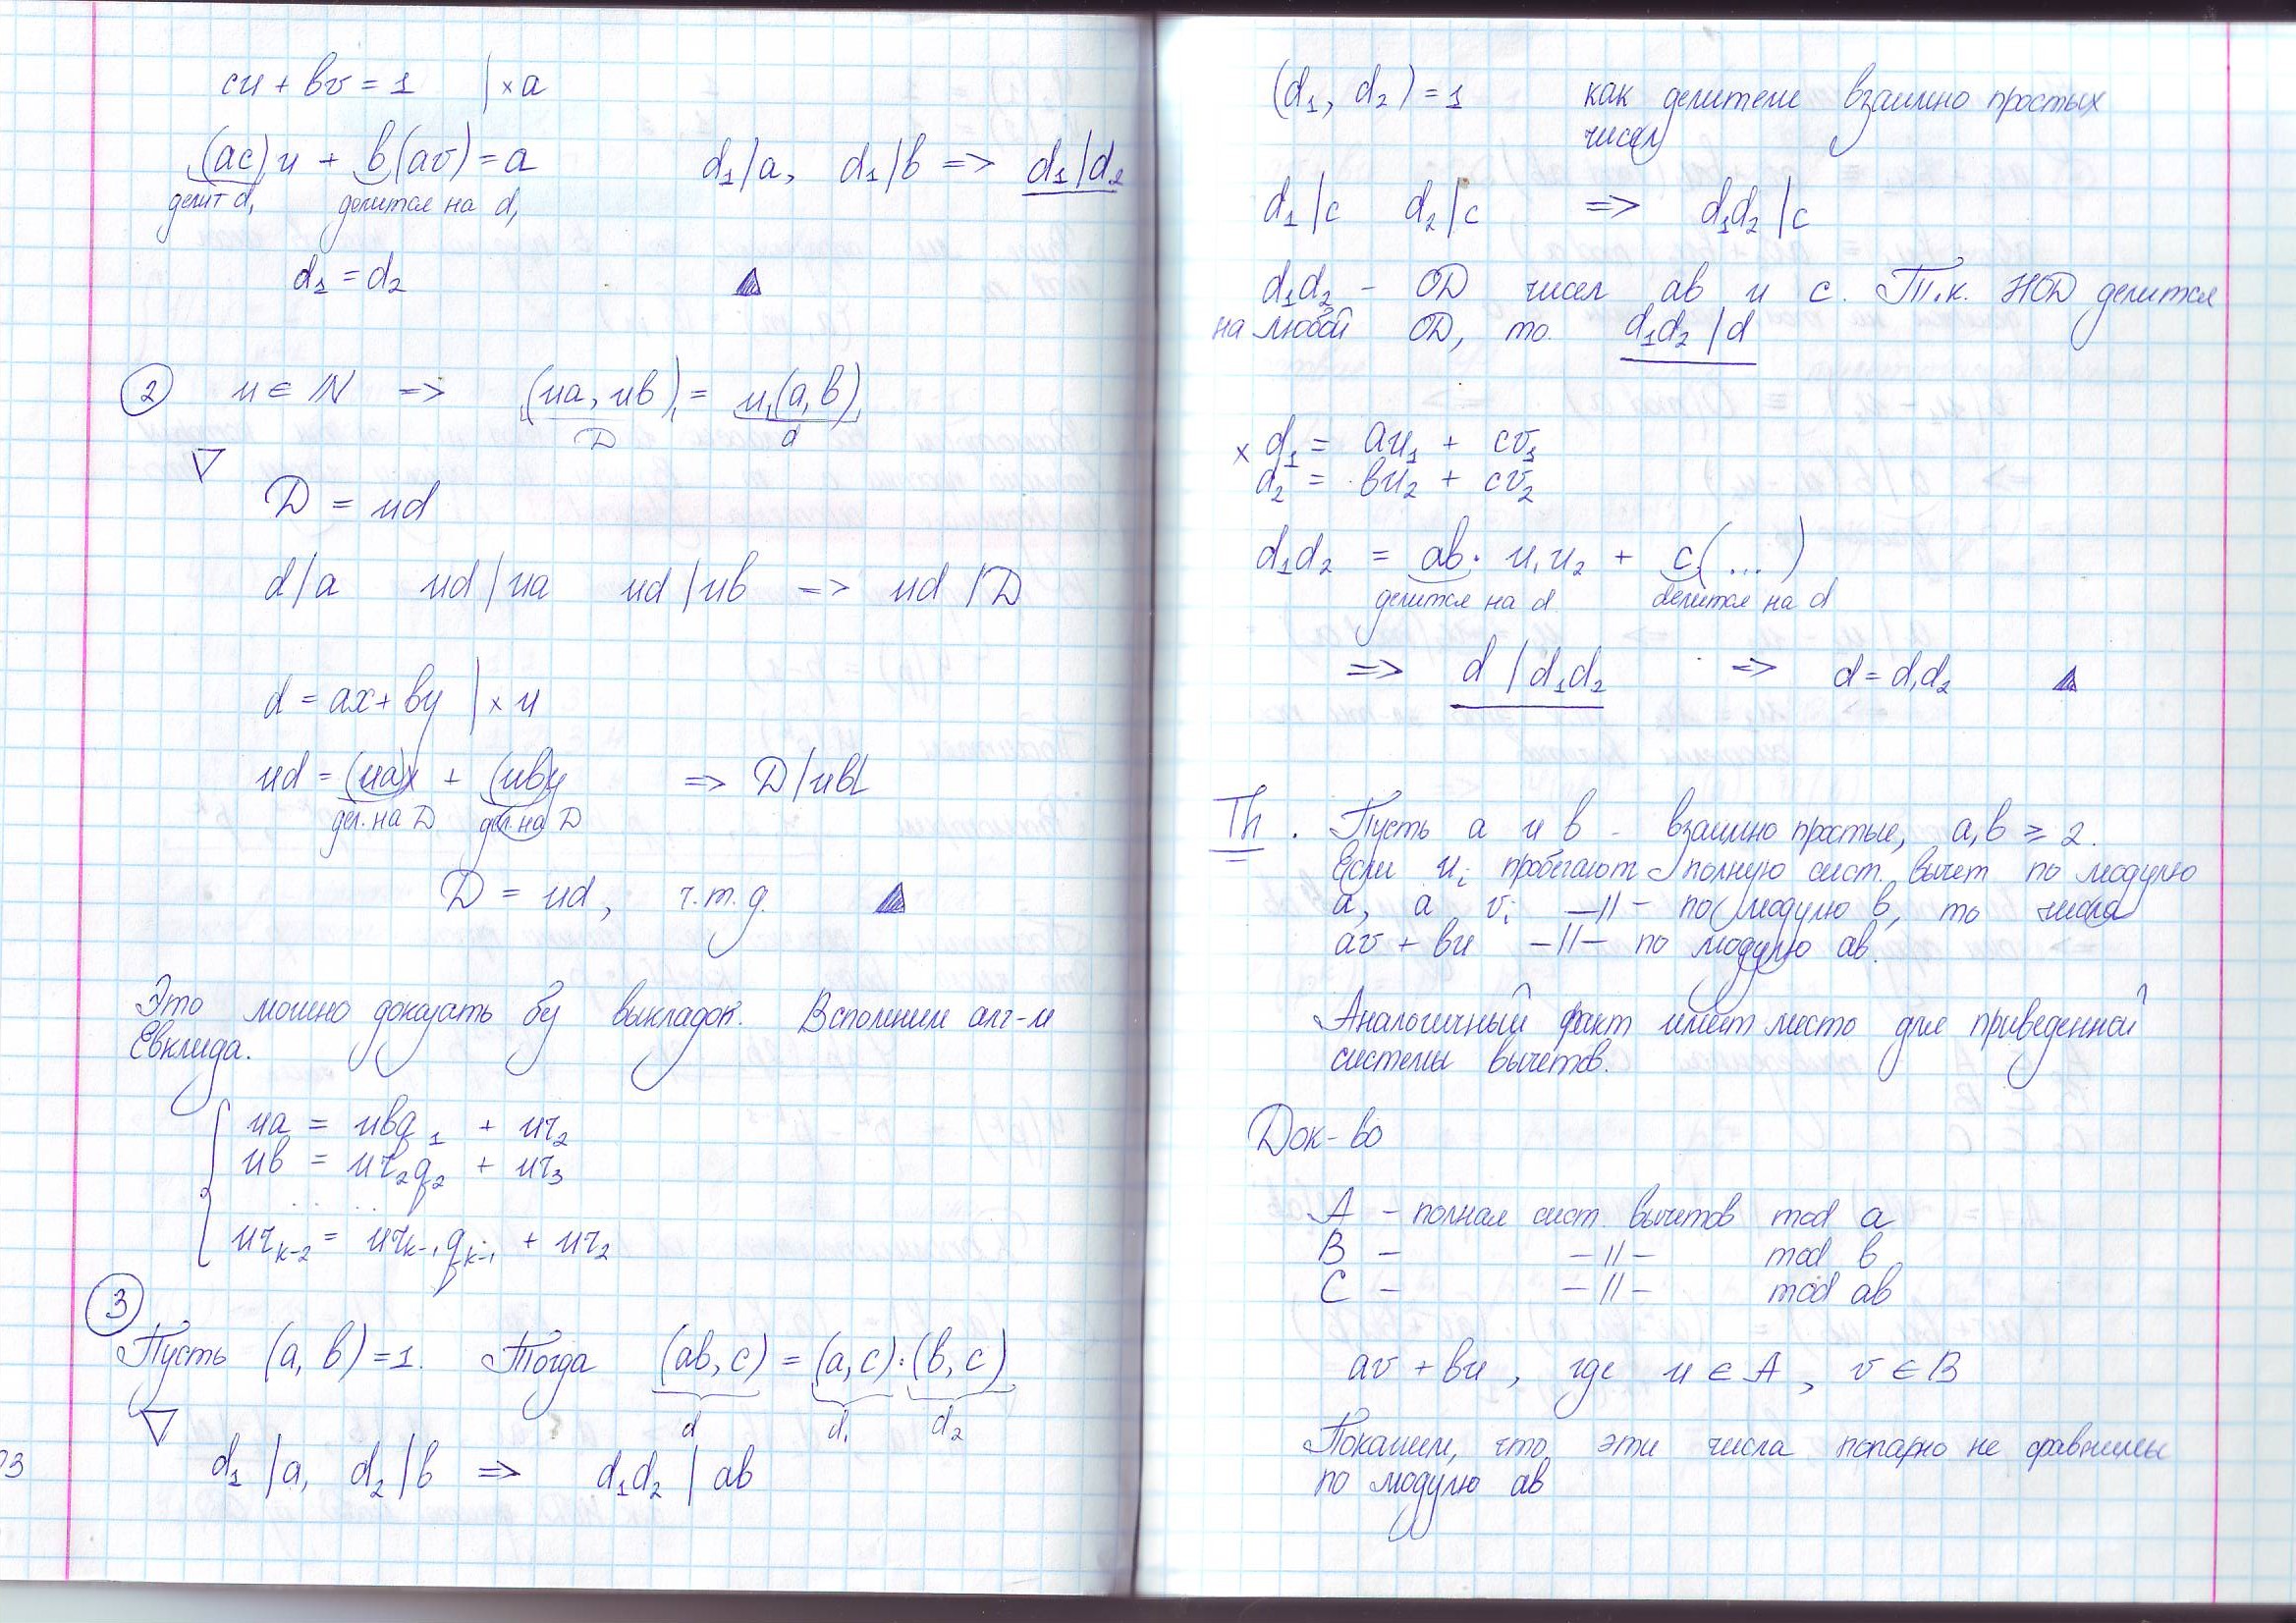 cu + bv = 1 | × a
(ac)u + b(av) = a d₁|a, d₁|b => d₁|d₂
делит d₁ делится на d₁
d₁ = d₂ ▲
② u ∈ ℕ => (ua, ub) = u(a, b)
D d
▽
D = ud
d|a ud|ua ud|ub => ud|D
d = ax + by | × u
ud = (ua)x + (ub)y => D|ud
дел. на D дел. на D
D = ud, ч.т.д. ▲
Это можно доказать без выкладок. Вспомним алг-м
Евклида.
ua = ubq₁ + ur₂
ub = ur₂q₂ + ur₃
. . . . .
urₖ₋₂ = urₖ₋₁qₖ₋₁ + ur₂
③
Пусть (a, b) = 1. Тогда (ab, c) = (a, c)·(b, c)
d d₁ d₂
▽
d₁|a, d₂|b => d₁d₂|ab
(d₁, d₂) = 1 как делители взаимно простых
чисел
d₁|c d₂|c => d₁d₂|c
d₁d₂ - ОД чисел ab и c. Т.к. НОД делится
на любой ОД, то d₁d₂|d
× d₁ = au₁ + cv₁
d₂ = bu₂ + cv₂
d₁d₂ = ab · u₁u₂ + c(...)
делится на d делится на d
=> d|d₁d₂ => d = d₁d₂ ▲
Th. Пусть a и b - взаимно простые, a, b ⩾ 2.
Если uᵢ пробегают полную сист. вычет по модулю
a, а vᵢ —//— по модулю b, то числа
av + bu —//— по модулю ab.
Аналогичный факт имеет место для приведенной
системы вычетов.
Док-во
A - полная сист. вычетов mod a
B - —//— mod b
C - —//— mod ab
av + bu, где u ∈ A, v ∈ B
Покажем, что эти числа попарно не сравнимы
по модулю ab